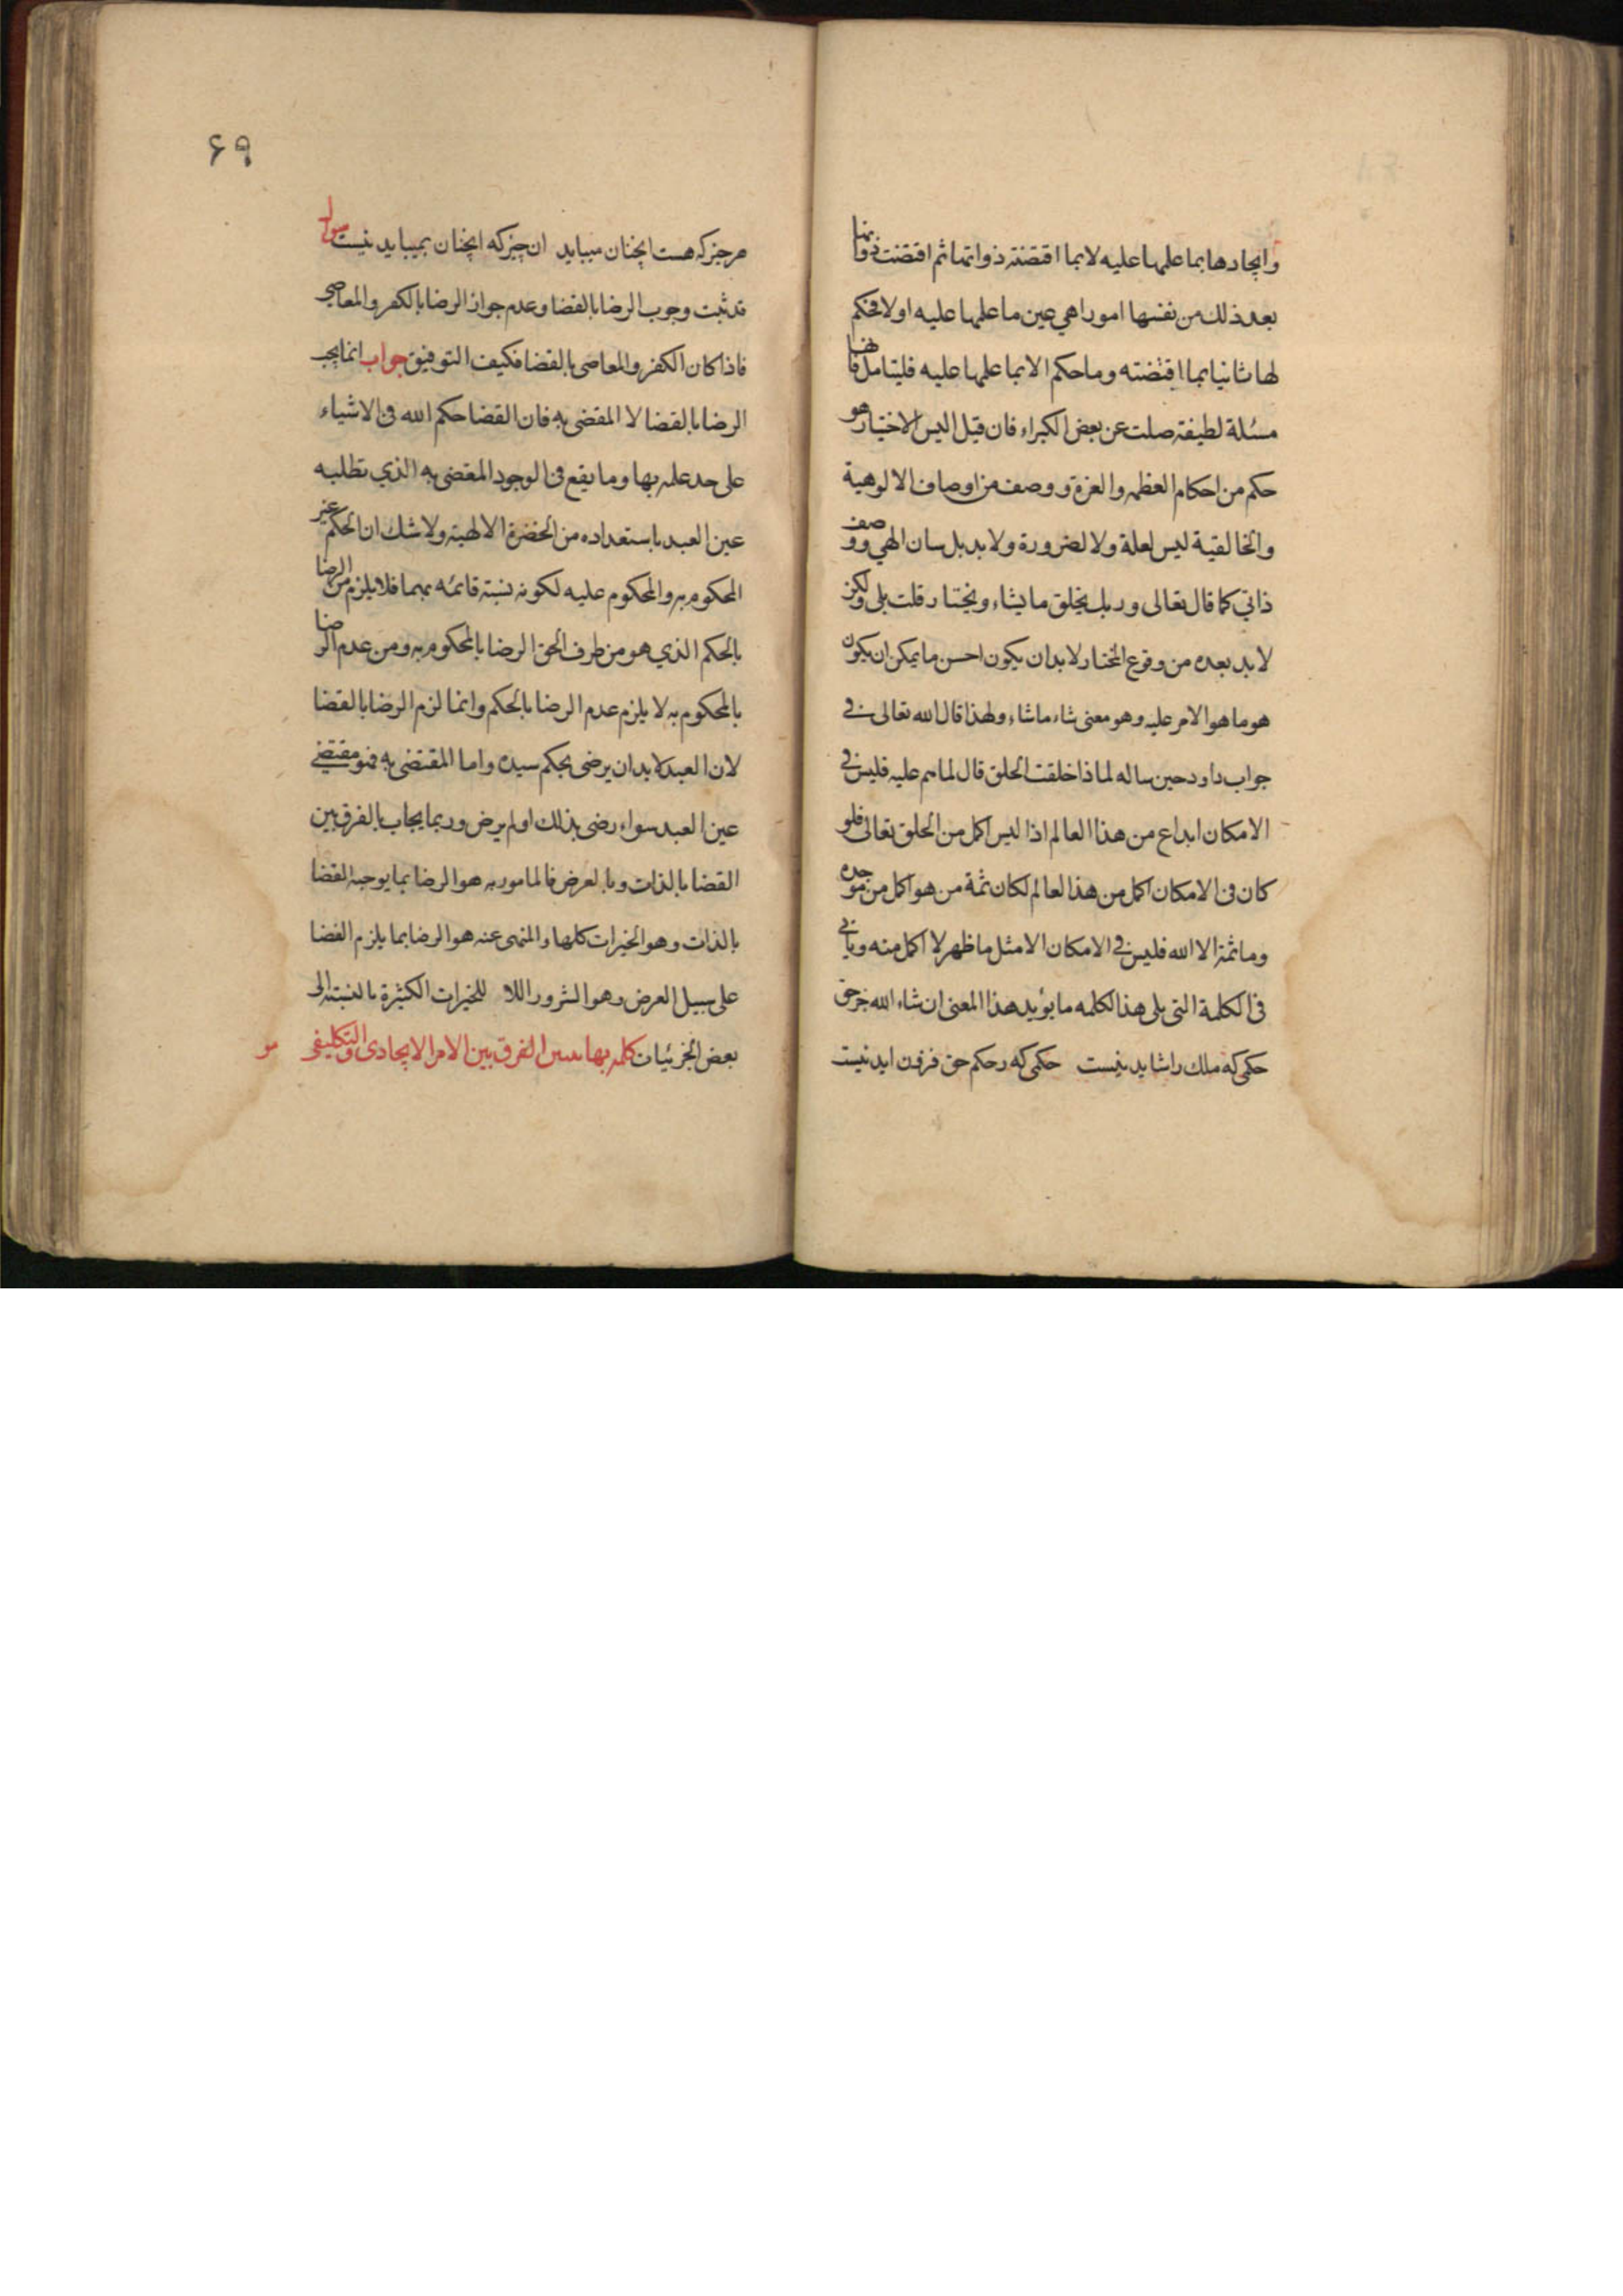 وايجادها بما علمها عليه لا بما اقتضته ذواتها ثم اقتضت ذواتها
بعد ذلك من نفسها امورا هي عين ما علمها عليه اولا فحكم
لها ثانيا بما اقتضته وما حكم الا بما علمها عليه فليتامل فانها
مسئلة لطيفة صلت عن بعض الكبراء فان قيل اليس الاختيار هو
حكم من احكام العظمه والعزة ووصف من اوصاف الالوهية
والخالقية ليس لعلة ولا لضرورة ولا بد بل سان الهي ووصف
ذاتي كما قال تعالى وربك يخلق ما يشاء ويختار قلت بلى ولكن
لا بد بعده من وقوع المختار لابد ان يكون احسن ما يمكن ان يكون
هو ما هو الامر عليه وهو معنى شاء ماشاء ولهذا قال الله تعالى في
جواب داود حين ساله لماذا خلقت الخلق قال لما هم عليه فليس في
الامكان ابداع من هذا العالم اذا ليس اكمل من الحلق تعالى فلو
كان في الامكان اكمل من هذا لعالم لكان ثمة من هو اكمل من موجده
وما ثمة الا الله فليس في الامكان الا مثل ما ظهر لا اكمل منه وياتي
في الكلمة التي يلى هذا لكلمه ما يؤيد هذا المعنى ان شاء الله
حكمى كه ملك راشايد نيست حكمى كه رحكم حق فزون ايد نيست
۶۹
هر چيز كه هست انچنان ميبايد ان چيز كه انچنان نميبايد نيست سوال
قد ثبت وجوب الرضا بالقضا وعدم جواز الرضا بالكفر والمعاصى
فاذا كان الكفر والمعاصى بالقضا فكيف التوفيق جواب انما يجب
الرضا بالقضا لا المقضى به فان القضا حكم الله في الاشياء
على حد علمه بها وما يقع في الوجود المقضى به الذي تطلبه
عين العبد باستعداده من الحضرة الالهية ولا شك ان الحكم غير
المحكوم به والمحكوم عليه لكونه نسبة قائمه بهما فلا يلزم من الرضا
بالحكم الذي هو من طرف الحق الرضا بالمحكوم به ومن عدم الرضا
بالمحكوم به لا يلزم عدم الرضا بالحكم وانما لزم الرضا بالقضا
لان العبد لا بد ان يرضى بحكم سيده واما المقتضى به فهو مقتضى
عين العبد سواء رضى بذلك او لم يرض وربما يجاب بالفرق بين
القضا بالذات وبالعرض فالمامور به هو الرضا بما يوجبه القضا
بالذات وهو الخيرات كلها والمنهى عنه هو الرضا بما يلزم القضا
على سبيل العرض وهو الشرور اللا للخيرات الكثيرة بالنسبة الى
بعض الجزئيات كلمه بها يتبين الفرق بين الامر الايجادى والتكليفى